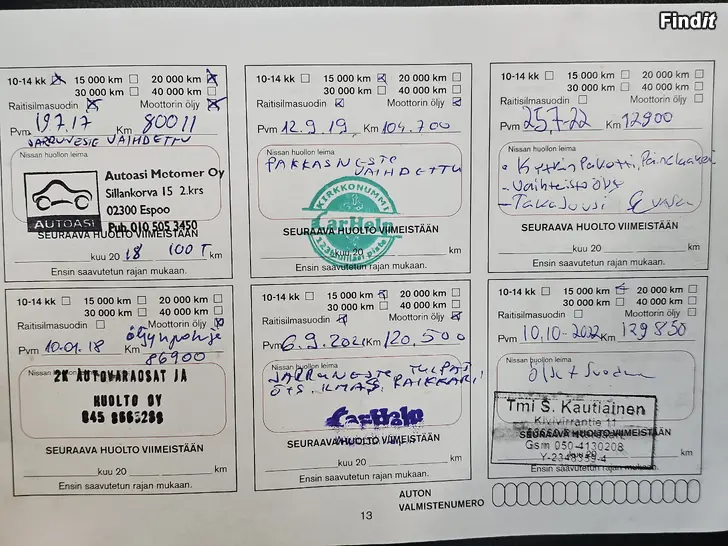 Findit
10-14 kk 15 000 km 20 000 km
30 000 km 40 000 km
Raitisilmasuodin Moottorin öljy
Pvm 19.7.17 Km 80011
JARRUNESTE VAIHDETTU
Nissan huollon leima
Autoasi Motomer Oy
Sillankorva 15 2.krs
02300 Espoo
Puh 010 505 3450
AUTOASI
SEURAAVA HUOLTO VIIMEISTÄÄN
kuu 20 18 100 T km
Ensin saavutetun rajan mukaan.
10-14 kk 15 000 km 20 000 km
30 000 km 40 000 km
Raitisilmasuodin Moottorin öljy
Pvm 12.9.19 Km 104.700
Nissan huollon leima
PAKKASNESTE
VAIHDETTU
KIRKKONUMMI
CarHelp
SEURAAVA HUOLTO VIIMEISTÄÄN
kuu 20 km
Ensin saavutetun rajan mukaan.
10-14 kk 15 000 km 20 000 km
30 000 km 40 000 km
Raitisilmasuodin Moottorin öljy
Pvm 25.7-22 Km
Nissan huollon leima
SEURAAVA HUOLTO VIIMEISTÄÄN
kuu 20 km
Ensin saavutetun rajan mukaan.
10-14 kk 15 000 km 20 000 km
30 000 km 40 000 km
Raitisilmasuodin Moottorin öljy
Pvm 10.01.18 Km 86900
Nissan huollon leima
2K AUTOVARAOSAT JA
HUOLTO OY
SEURAAVA HUOLTO VIIMEISTÄÄN
kuu 20 km
Ensin saavutetun rajan mukaan.
10-14 kk 15 000 km 20 000 km
30 000 km 40 000 km
Raitisilmasuodin Moottorin öljy
Pvm 6.9.2021 Km 120,500
Nissan huollon leima
JARRUNESTE, TULPAT
CarHelp
SEURAAVA HUOLTO VIIMEISTÄÄN
kuu 20 km
Ensin saavutetun rajan mukaan.
10-14 kk 15 000 km 20 000 km
30 000 km 40 000 km
Raitisilmasuodin Moottorin öljy
Pvm 10.10-2022 Km 129850
Nissan huollon leima
Tmi S. Kautiainen
Kivivirrantie 11
SEURAAVA HUOLTO VIIMEISTÄÄN
Gsm 050-4130208
kuu 20 km
Ensin saavutetun rajan mukaan.
AUTON
VALMISTENUMERO
13